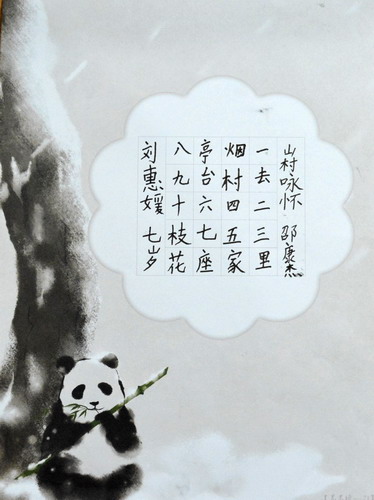 山村咏怀 邵康杰
一去二三里
烟村四五家
亭台六七座
八九十枝花
刘惠媛 七岁